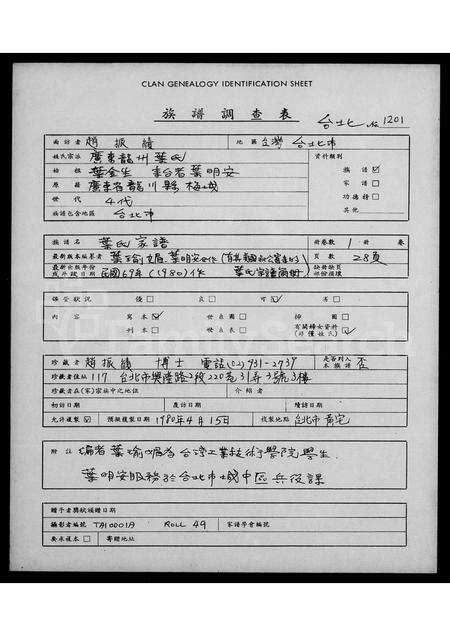 CLAN GENEALOGY IDENTIFICATION SHEET
族譜調查表 台北 No 1201
面訪者 趙振績 地區 台灣 台北市
姓氏宗派 廣東龍川葉氏 資料類別
始祖 葉金生 編者葉明安 族譜 ☑
原籍 廣東省龍川縣 家譜 □
世代 4代 功德榜 □
族譜包含地區 台北市 其他
族譜名 葉氏家譜 冊卷數 1 冊 卷
最新版本編纂者 葉瑜 葉明安 頁數 28頁
最新出版年份或手政日期 民國69年(1980)作 缺冊缺頁部份損壞
保管狀況 優 □ 良 □ 可 ☑ 劣 □
內容 寫本 ☑ 世系圖 □ 排圖 □ 有關婦女資料(非僅姓氏) ☑
刊本 □ 世系表 □
珍藏者 趙振績 博士 電話(02)931-2739 是否列入本族譜 否
珍藏者住址 117 台北市興隆路2段220巷31弄3號3樓
珍藏者在(家)宗族中之地位 介紹者
初訪日期 產訪日期 續訪日期
允許複製 ☑ 預擬複製日期 1980年4月15日 複製地點 台北市黃宅
附註 編者葉瑜 為台灣工業技術學院學生
葉明安服務於台北市城中區兵役課
贈予者獎狀頒贈日期
攝影者編號 TA10001A ROLL 49 家譜學會編號
要求複本 □ 寄贈地址
FamilySearch